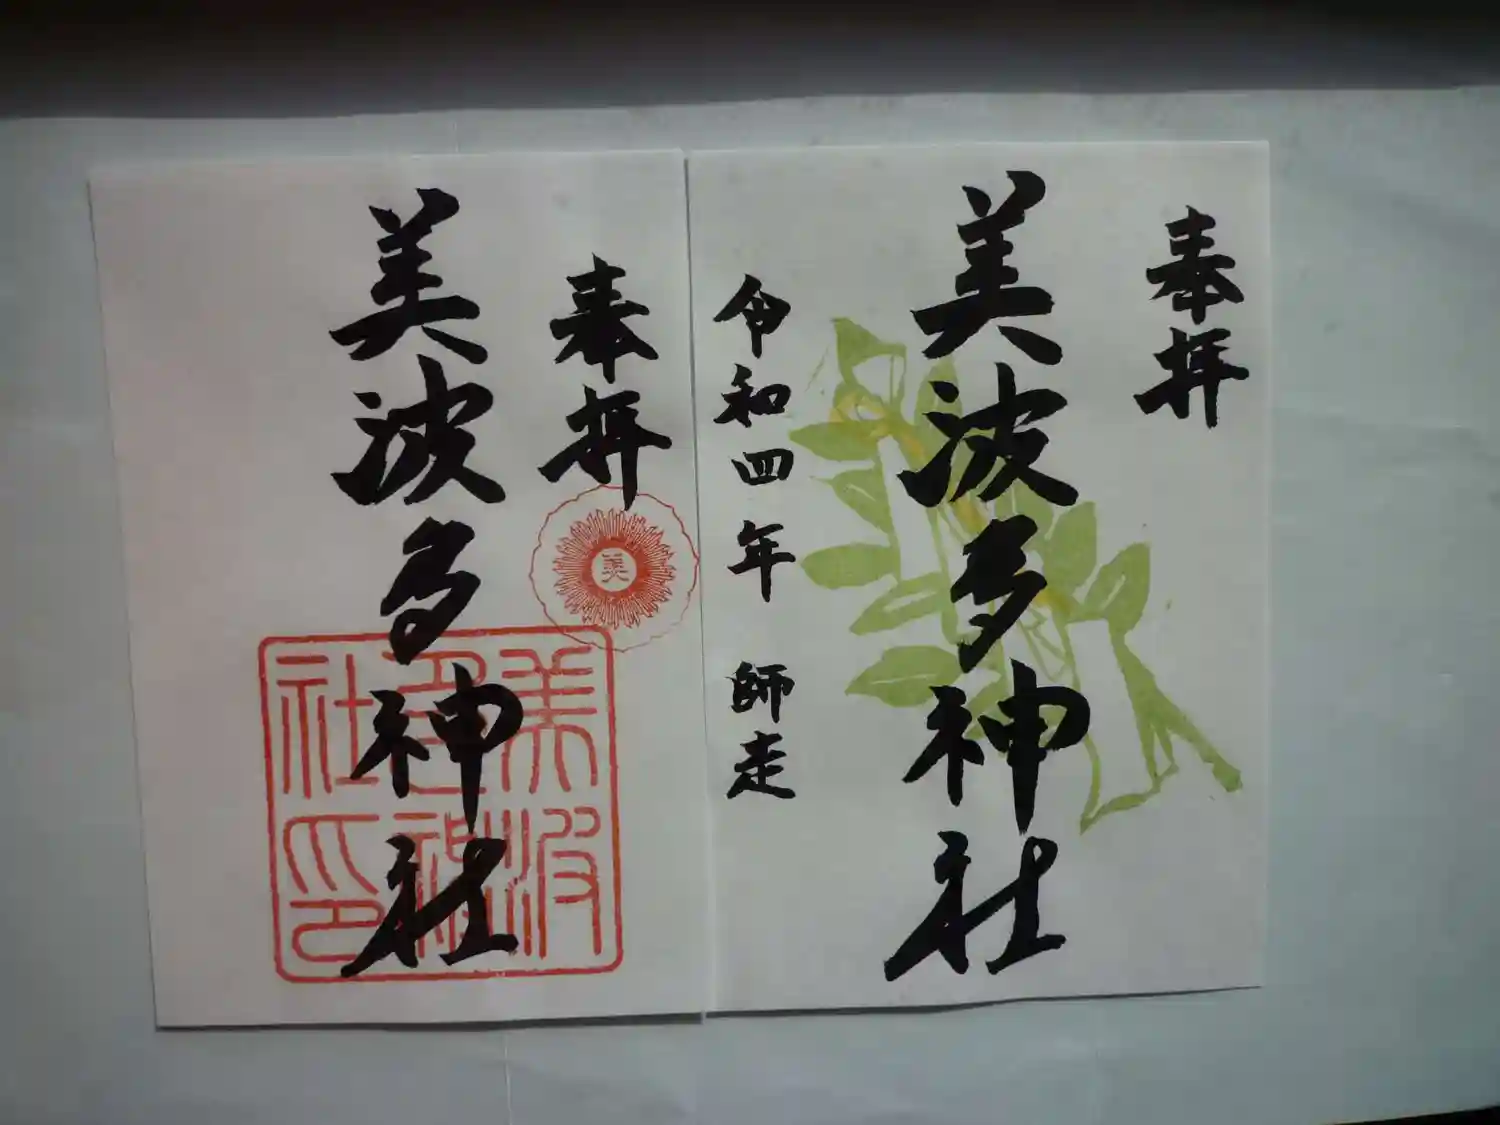 奉拝
美波多神社
令和四年 師走
奉拝
美
美波多神社
美波多神社印